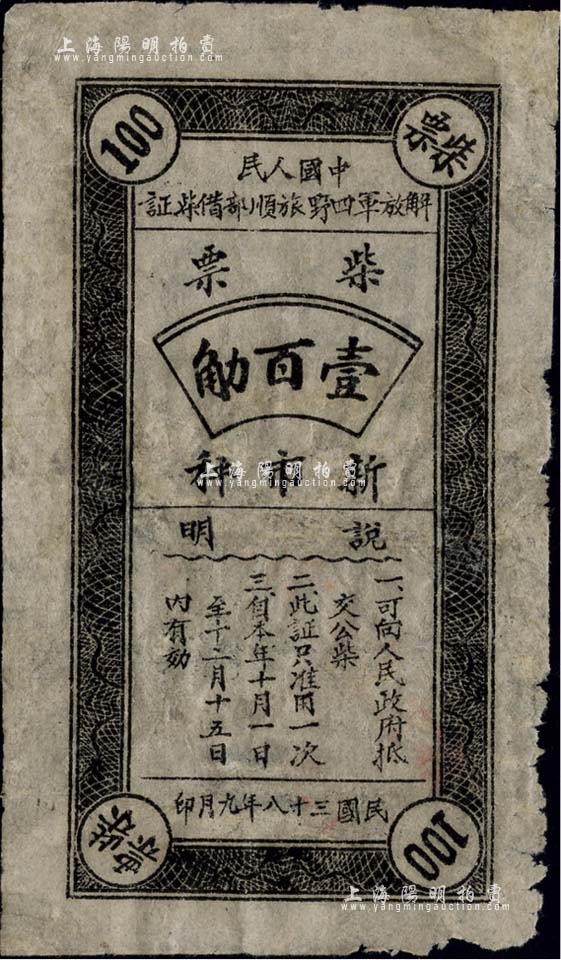 上海陽明拍賣
www.yangmingauction.com
100
柴票
中國人民
解放軍四野旅順部借柴証
柴票
壹百觔
新市秤
上海陽明拍賣
www.yangmingauction.com
說明
一、可向人民政府抵
交公柴
二、此証只准用一次
三、自本年十月一日
至十二月十五日
内有効
民國三十八年九月印
柴票
100
上海陽明拍賣
www.yangmingauction.com